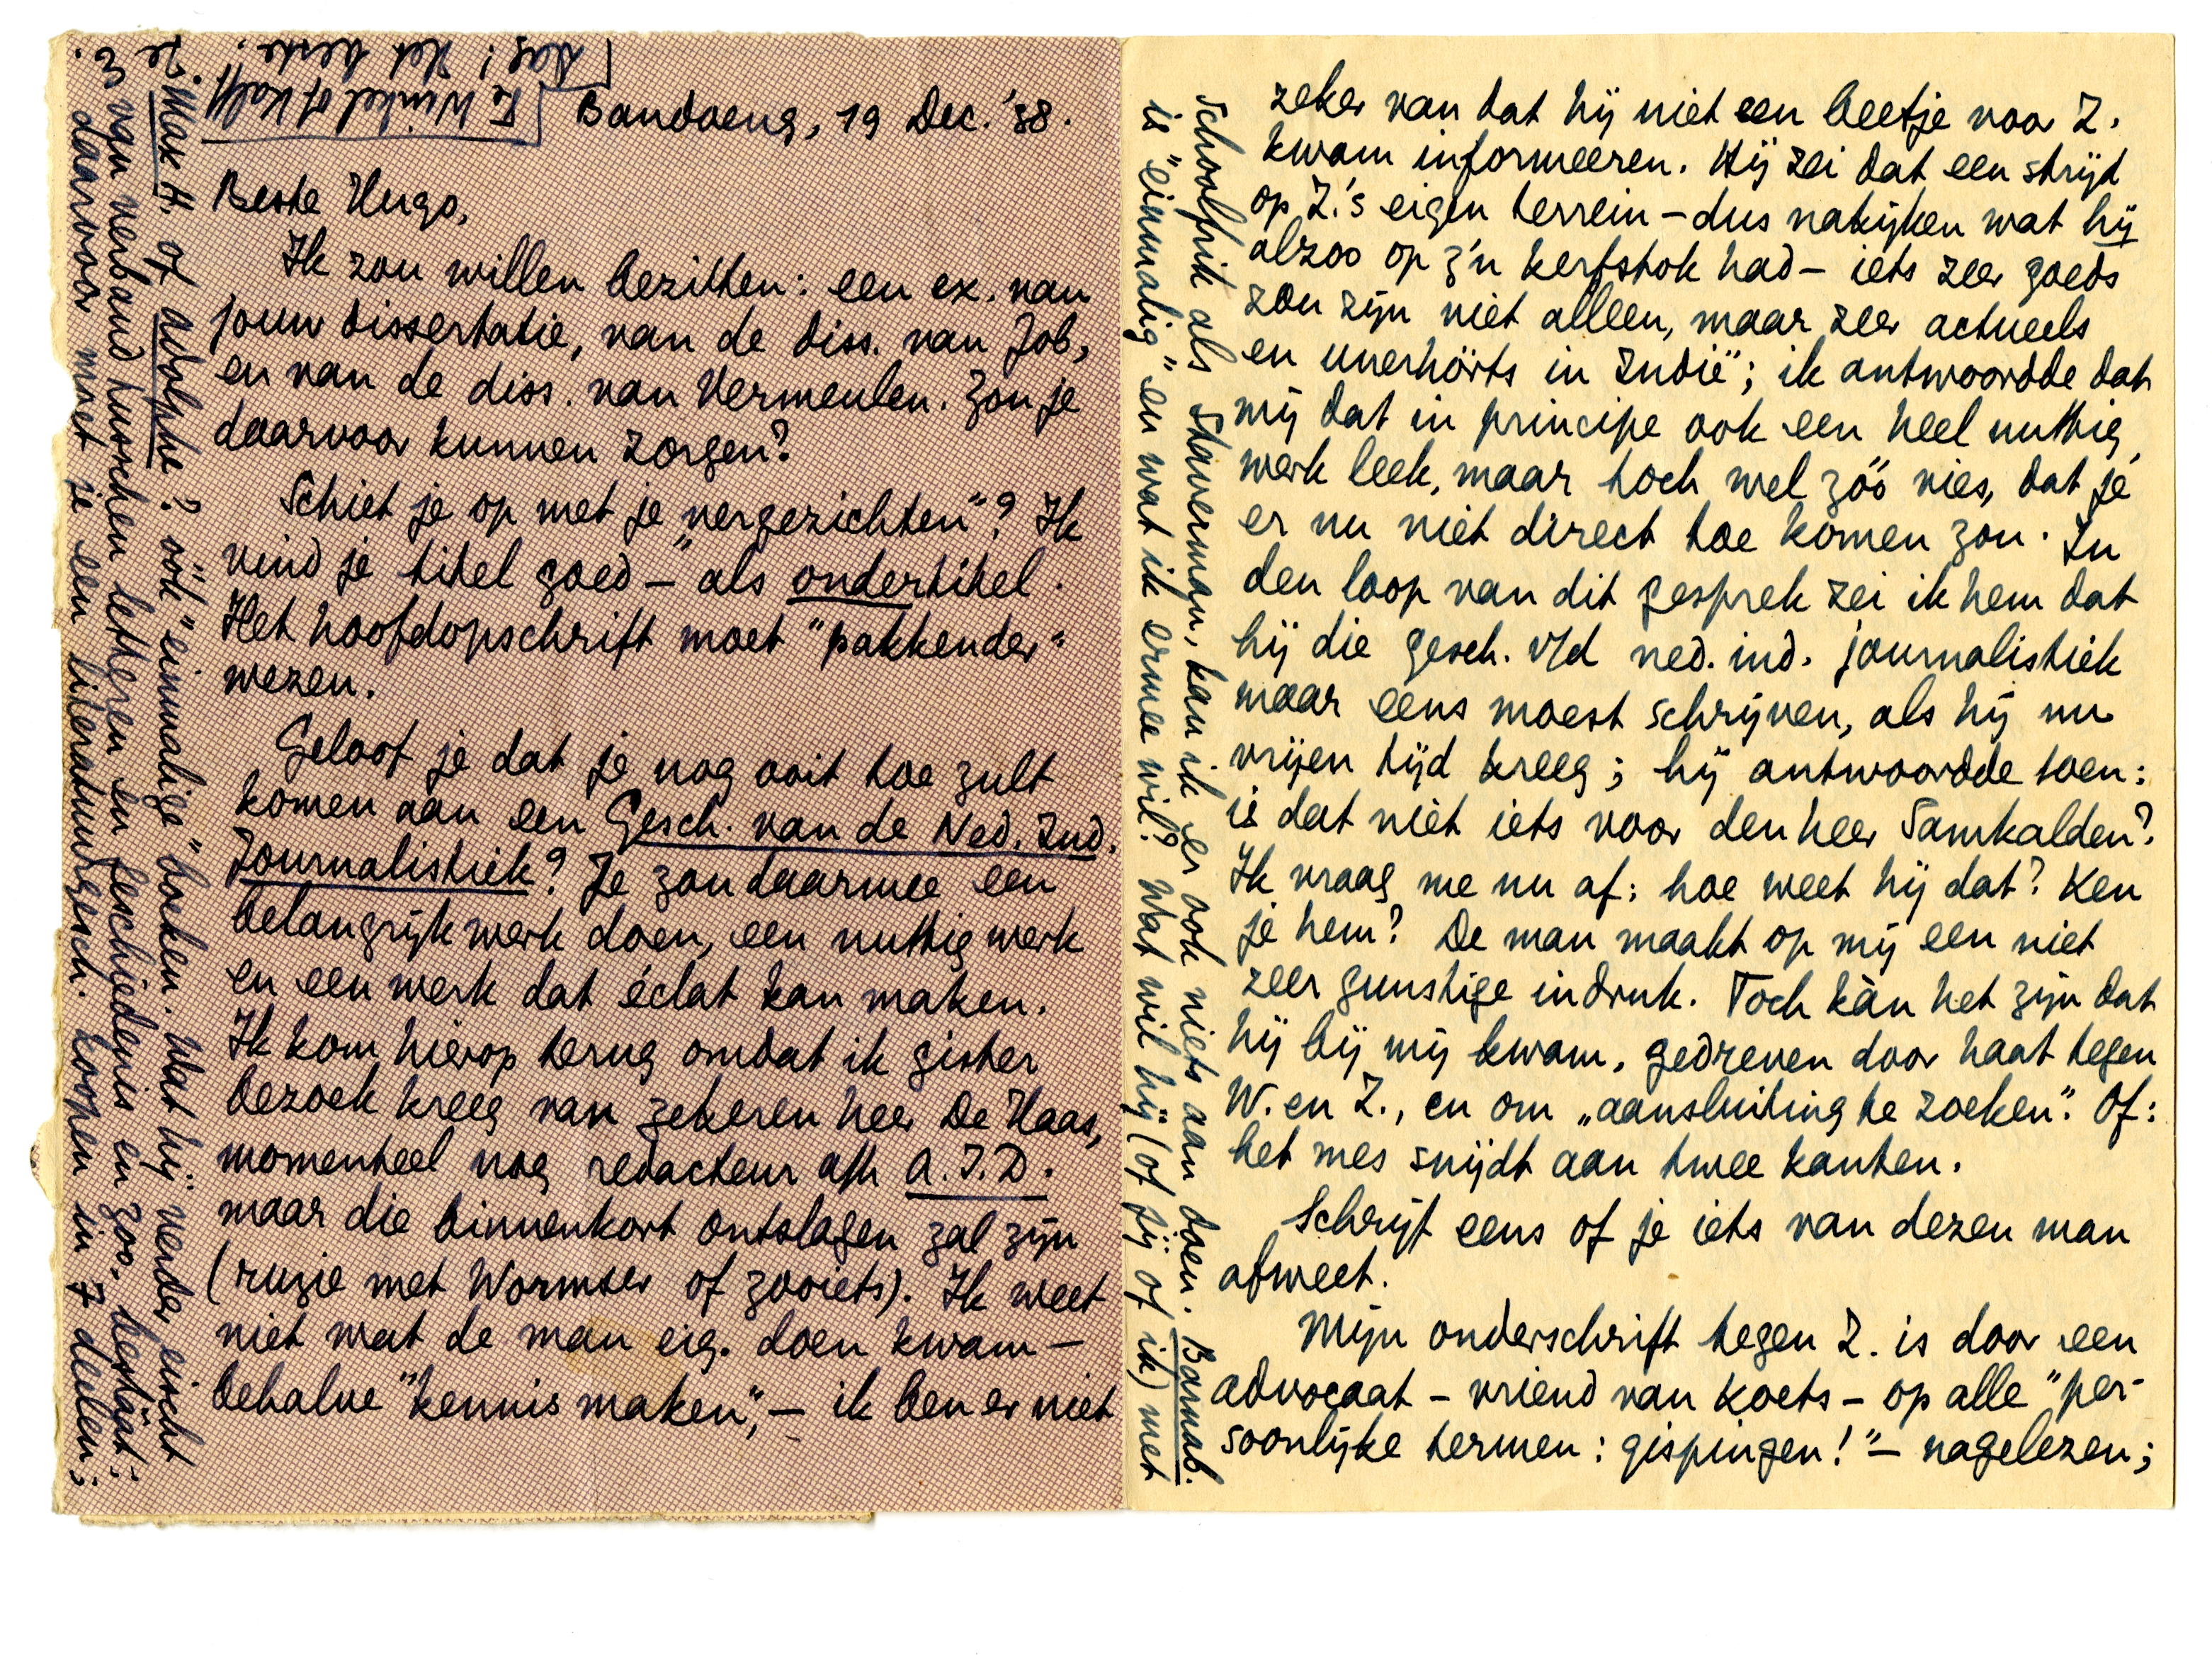 Bandoeng, 19 Dec. '38.
Beste Hugo,
Ik zou willen bezitten: een ex. van
jouw dissertatie, van de diss. van Job,
en van de diss. van Vermeulen. Zou je
daarvoor kunnen zorgen?
Schiet je op met je „vergezichten"? Ik
vind je titel goed — als ondertitel.
Het hoofdopschrift moet "pakkender"
wezen.
Geloof je dat je nog ooit toe zult
komen aan een Gesch. van de Ned. Ind.
Journalistiek? Je zou daarmee een
belangrijk werk doen, een nuttig werk
en een werk dat éclat kan maken.
Ik kom hierop terug omdat ik gister
bezoek kreeg van zekeren heer De Haas,
momenteel nog redacteur a/h A.I.D.
maar die binnenkort ontslagen zal zijn
(ruzie met Wormser of zooiets). Ik weet
niet wat de man eig. doen kwam —
behalve "kennis maken", — ik ben er niet
zeker van dat hij niet een beetje voor Z.
kwam informeeren. Hij zei dat een strijd
op Z.'s eigen terrein — dus nakijken wat hij
alzoo op z'n kerfstok had — iets zeer goeds
zou zijn niet alleen, maar zeer actueels
en unerhörts in Indië"; ik antwoordde dat
mij dat in principe ook een heel nuttig
werk leek, maar toch wel zóó vies, dat je
er nu niet direct toe komen zou. In
den loop van dit gesprek zei ik hem dat
hij die gesch. v/d ned. ind. journalistiek
maar eens moest schrijven, als hij nu
vrijen tijd kreeg; hij antwoordde toen:
is dat niet iets voor den heer Samkalden?
Ik vraag me nu af: hoe weet hij dat? Ken
je hem? De man maakt op mij een niet
zeer gunstige indruk. Toch kàn het zijn dat
hij bij mij kwam, gedreven door haat tegen
W. en Z., en om „aansluiting te zoeken". Of:
het mes snijdt aan twee kanten.
Schrijf eens of je iets van dezen man
afweet.
Mijn onderschrift tegen Z. is door een
advocaat — vriend van Koets — op alle "per-
soonlijke termen: gispingen!" — nagelezen;
schoolfrik als Stuverman, kan ik er ook niets aan doen. Barnab.
is "einmalig" en wat ik ermee wil? Wat wil hij (of jij of ik) met
Max H. of Adolphe? óók "einmalige" boeken. Wat hij verder eischt
van verband tusschen letteren en geschiedenis en zoo, bestáát;
daarvoor moet je een literatuurgesch. koopen in 7 deelen;
Te Winkel of Kalff
Dag! Het beste!